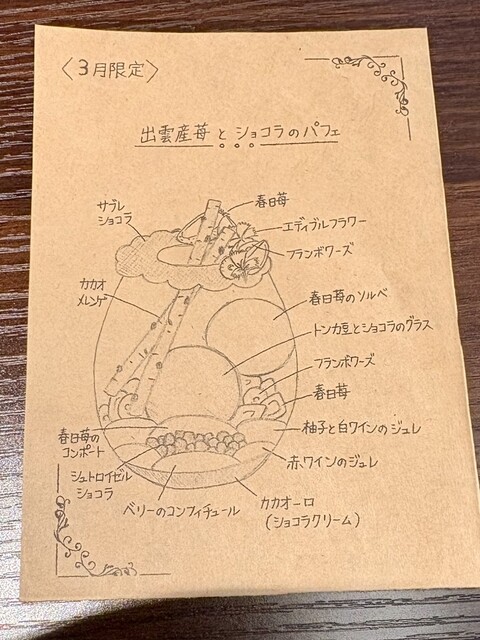 〈3月限定〉
出雲産苺とショコラのパフェ
サブレ
ショコラ
春日苺
エディブルフラワー
フランボワーズ
カカオ
メレンゲ
春日苺のソルベ
トンカ豆とショコラのグラス
フランボワーズ
春日苺
柚子と白ワインのジュレ
春日苺の
コンポート
赤ワインのジュレ
シュトロイゼル
ショコラ
ベリーのコンフィチュール
カカオーロ
(ショコラクリーム)